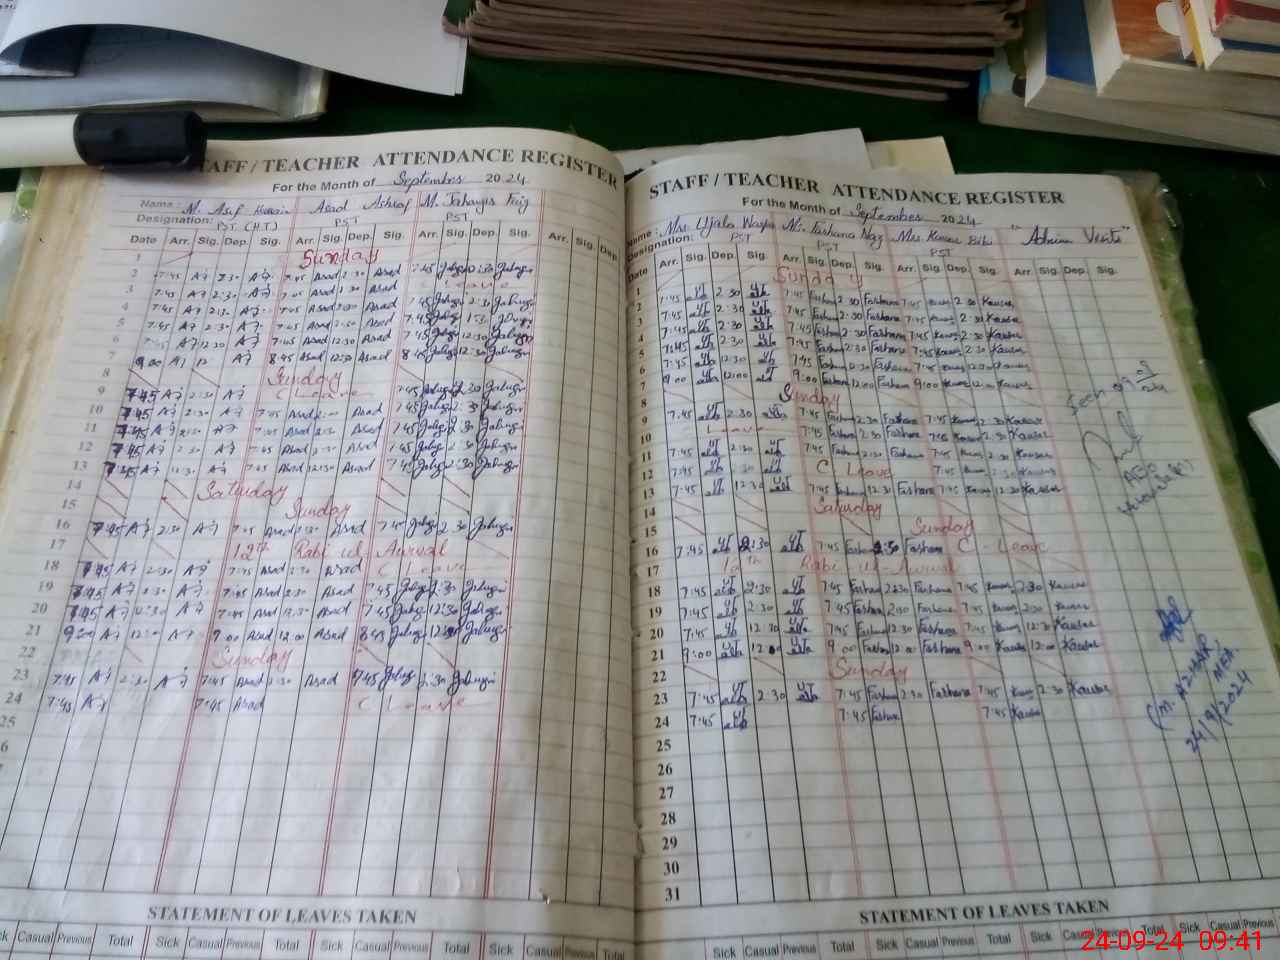 STAFF / TEACHER ATTENDANCE REGISTER
For the Month of September 2024
Name: M. Asif Hussain Asad Ashraf M. Jahangir Faiz
Designation: PST (H.T) PST PST
Date Arr. Sig. Dep. Sig. Arr. Sig. Dep. Sig. Arr. Sig. Dep. Sig. Arr. Sig. Dep. Sig.
1 Sunday
2 7:45 2:30 7:45 Asad 2:30 Asad 7:45 2:30
3 7:45 2:30 7:45 Asad 2:30 Asad Leave
4 7:45 2:30 7:45 Asad 2:30 Asad 7:45 2:30
5 7:45 2:30 7:45 Asad 2:30 Asad 7:45
6 7:45 12:30 7:45 Asad 12:30 Asad 7:45 12:30
7 9:00 12 8:45 Asad 12:30 Asad 8:45 12:30
8 Sunday
9 7:45 2:30 C Leave 7:45 2:30
10 7:45 2:30 7:45 Asad 2:30 Asad 7:45 2:30
11 7:45 2:30 7:45 Asad 2:30 Asad 7:45 2:30
12 7:45 2:30 7:45 Asad 2:30 Asad 7:45 2:30
13 7:45 12:30 7:45 Asad 12:30 Asad 7:45 12:30
14 Saturday
15 Sunday
16 7:45 2:30 7:45 Asad 2:30 Asad 7:45 2:30
17 12th Rabi-ul-Awwal
18 7:45 2:30 7:45 Asad 2:30 Asad C Leave
19 7:45 2:30 7:45 Asad 2:30 Asad 7:45 2:30
20 7:45 12:30 7:45 Asad 12:30 Asad 7:45 12:30
21 9:00 12:00 9:00 Asad 12:00 Asad 8:45 12:00
22 Sunday
23 7:45 2:30 7:45 Asad 2:30 Asad 7:45 2:30
24 7:45 7:45 Asad C Leave
25
26
STATEMENT OF LEAVES TAKEN
Sick Casual Previous Total Sick Casual Previous Total Sick Casual Previous Total Sick Casual Previous Total
STAFF / TEACHER ATTENDANCE REGISTER
For the Month of September 2024
Name: Mrs Ujala Mrs. Farhana Naz Mrs Kausar Bibi "Admin Visits"
Designation: PST PST PST
Date Arr. Sig. Dep. Sig. Arr. Sig. Dep. Sig. Arr. Sig. Dep. Sig. Arr. Sig. Dep. Sig.
1 Sunday
2 7:45 2:30 7:45 Farhana 2:30 Farhana 7:45 Kausar 2:30 Kausar
3 7:45 2:30 7:45 Farhana 2:30 Farhana 7:45 Kausar 2:30 Kausar
4 7:45 2:30 7:45 Farhana 2:30 Farhana 7:45 Kausar 2:30 Kausar
5 7:45 2:30 7:45 Farhana 2:30 Farhana 7:45 Kausar 2:30 Kausar
6 7:45 12:30 7:45 Farhana 12:30 Farhana 7:45 Kausar 12:30 Kausar
7 9:00 12:00 9:00 Farhana 12:00 Farhana 9:00 Kausar 12:00 Kausar
8 Sunday
9 7:45 2:30 7:45 Farhana 2:30 Farhana 7:45 Kausar 2:30 Kausar
10 Leave 7:45 Farhana 2:30 Farhana 7:45 Kausar 2:30 Kausar
11 7:45 2:30 7:45 Farhana 2:30 Farhana 7:45 Kausar 2:30 Kausar
12 7:45 2:30 C Leave 7:45 Kausar 2:30 Kausar
13 7:45 12:30 7:45 Farhana 12:30 Farhana 7:45 Kausar 12:30 Kausar
14 Saturday
15 Sunday
16 7:45 2:30 7:45 Farhana 2:30 Farhana C - Leave
17 12th Rabi-ul-Awwal
18 7:45 2:30 7:45 Farhana 2:30 Farhana 7:45 Kausar 2:30 Kausar
19 7:45 2:30 7:45 Farhana 2:30 Farhana 7:45 Kausar 2:30 Kausar
20 7:45 12:30 7:45 Farhana 12:30 Farhana 7:45 Kausar 12:30 Kausar
21 9:00 12:00 9:00 Farhana 12:00 Farhana 9:00 Kausar 12:00 Kausar
22 Sunday
23 7:45 2:30 7:45 Farhana 2:30 Farhana 7:45 Kausar 2:30 Kausar
24 7:45 7:45 Farhana 7:45 Kausar
25
26
27
28
29
30
31
Seen
AEO
(M. AZHAR
MEA
24/9/2024
STATEMENT OF LEAVES TAKEN
Sick Casual Previous Total Sick Casual Previous Total Sick Casual Previous Total Sick Casual Previous
24-09-24 09:41